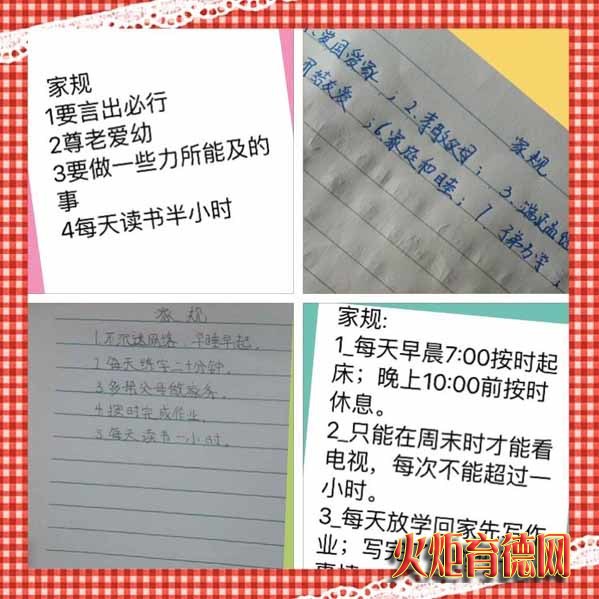 家规
1要言出必行
2尊老爱幼
3要做一些力所能及的
事
4每天读书半小时
爱国爱家;2、孝敬父母;3、
团结友爱;6、家庭和睦;7、
家规
家规
1.不沉迷网络,早睡早起。
2.每天练字二十分钟。
3.多帮父母做家务。
4.按时完成作业。
5.每天读书一小时。
家规:
1_每天早晨7:00按时起
床;晚上10:00前按时
休息。
2_只能在周末时才能看
电视,每次不能超过一
小时。
3_每天放学回家先写作
业;写完
火炬育德网